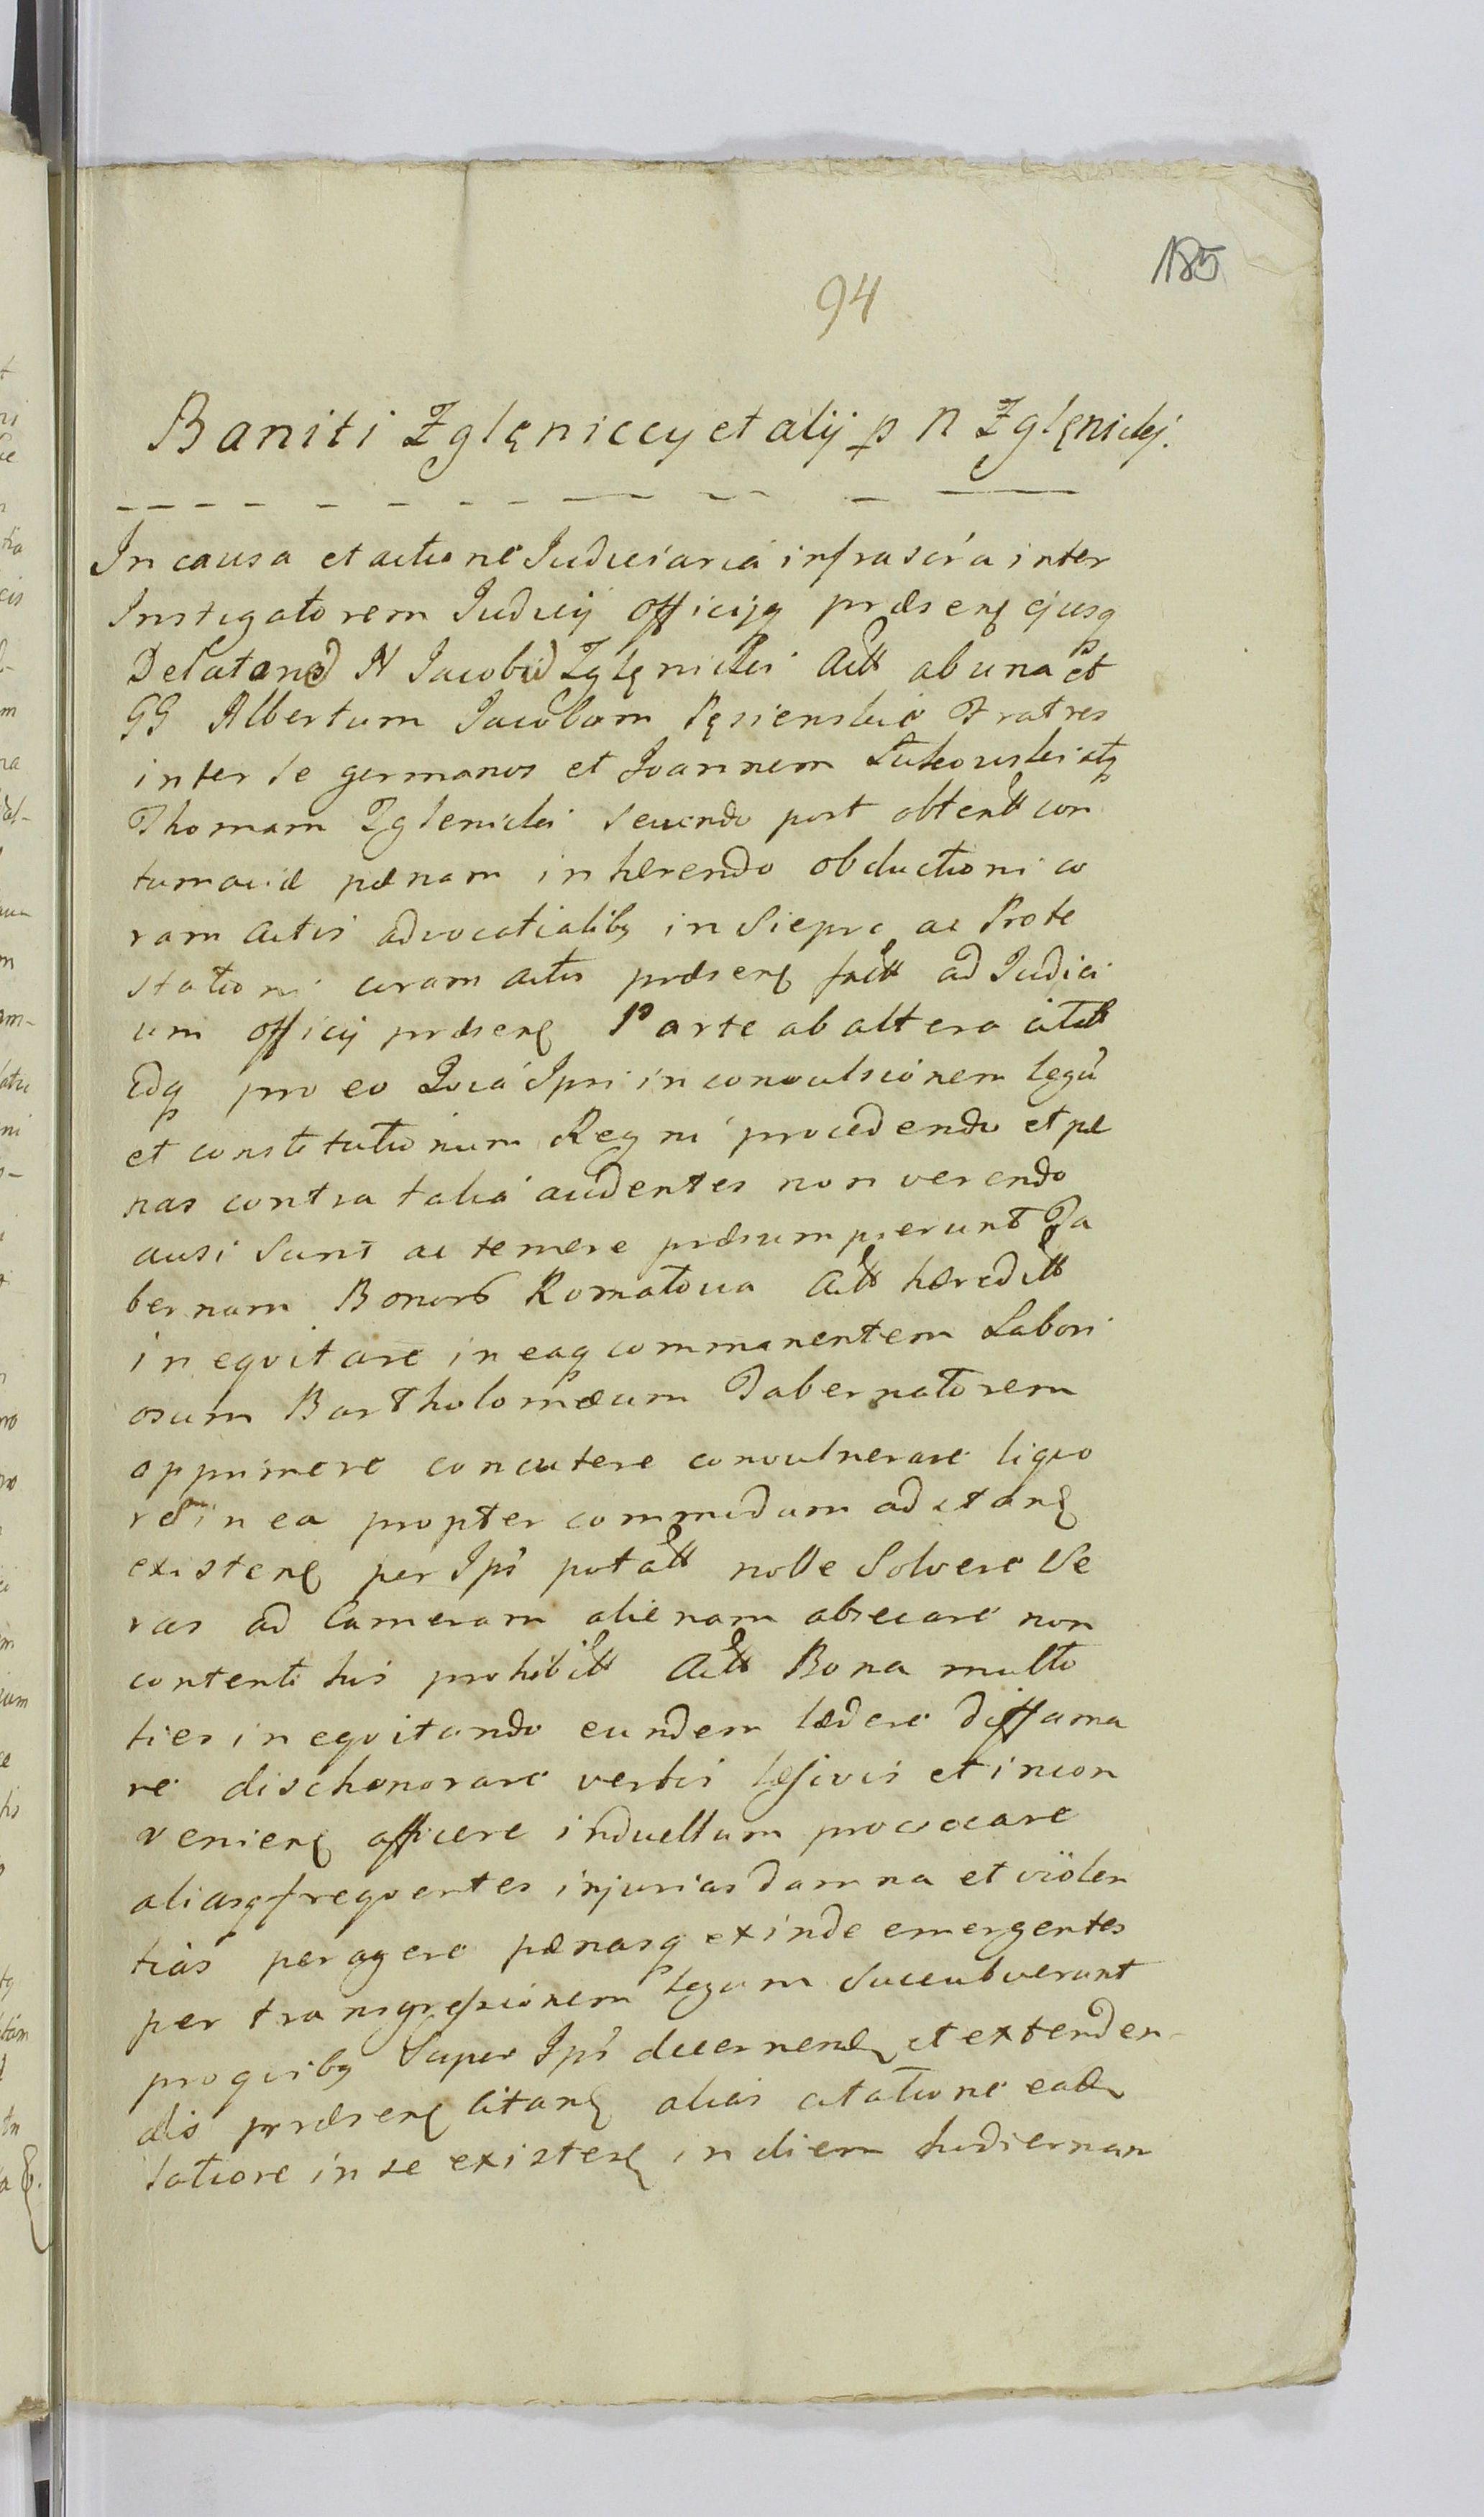 185
94
Baniti Zglęniccy et alij p N Zglęnickj.
In causa et actione Judiciaria infrascra inter
Instigatorem Judicij Officijq præsenę ejusq
Delatorem N Jacobum Zglęnicki Actt ab una et
GG Albertum Jacobum Fratres
inter se germanos et Joannem atq
Thomam Zglenicki secundo post obtentt con
tumaciæ pænam inhærendo obductioni co
ram actis advocatialibq in Sieprc ac Prote
stationi coram actis præsenę factt ad Judici
um officij præsenę Parte ab altera citatt
Idq pro eo Quia Ipsi in convulsionem legū
et constitutionum Regni procedendo et pæ
nas contra talia audentes non verendo
ausi sunt ac temere præsumpserunt Ta
bernam Bonorō Romatowa Actt hæreditt
inequitare in eaq commanentem Labori
osum Bartholomæum Tabernatorem
opprimere concutere convulnerare liquo
rem in ea propter commodum adstanę
existenę per Ips potatt nolle solvere Se
ras ad Cameram alienam absecare non
contenti his prohibitt Actt Bona multo
ties inequitando eundem lædere diffama
re dischonorare verbis læsivis et incon
venienę afficere in duellum provocare
aliasq frequentes injurias damna et violen
tias peragere pænasq exinde emergentes
per transgressionem legum succubuerunt
pro quibq super Ips decernenę et extenden-
dis præsenę citanę alias citatione eadę
latiore in se existenę in diem hodiernam